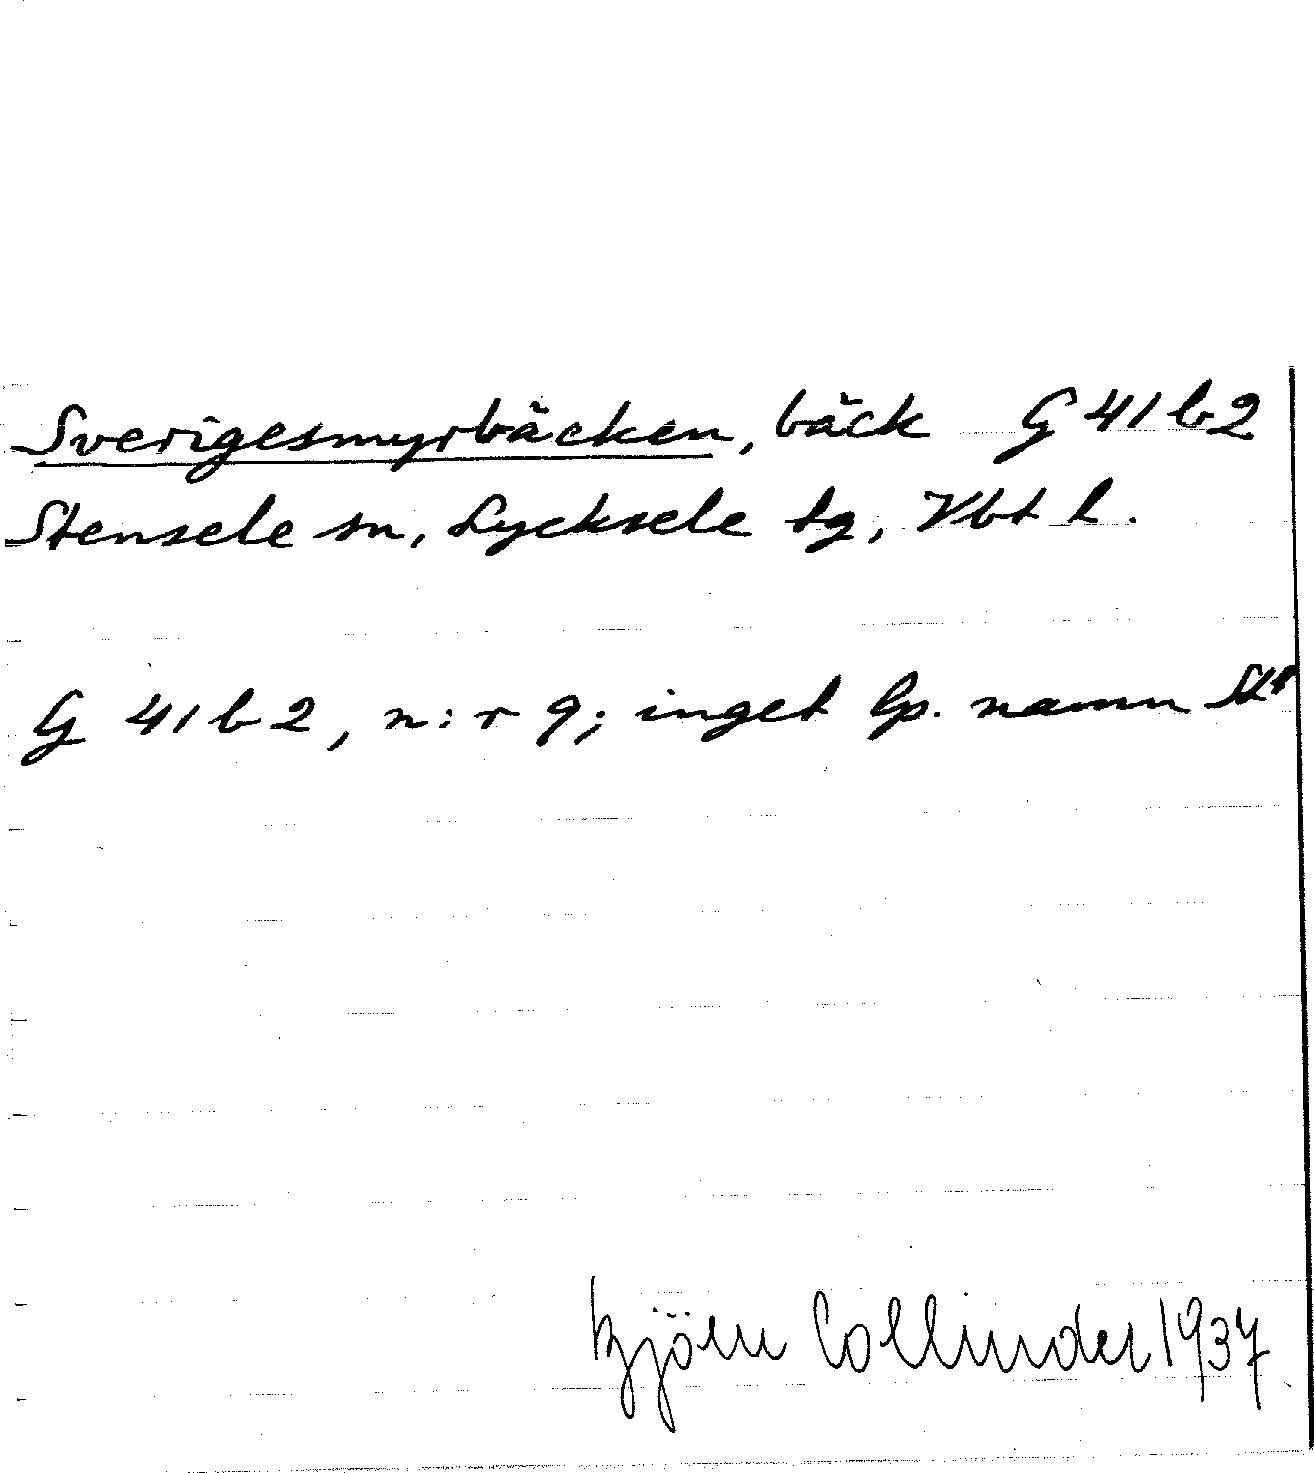 Sverigesmyrbäcken, bäck G 41 b 2
Stensele sn, Lycksele tg, Vbt l.
G 41 b 2, n:r 9; inget lp. namn
Björn Collinder 1937